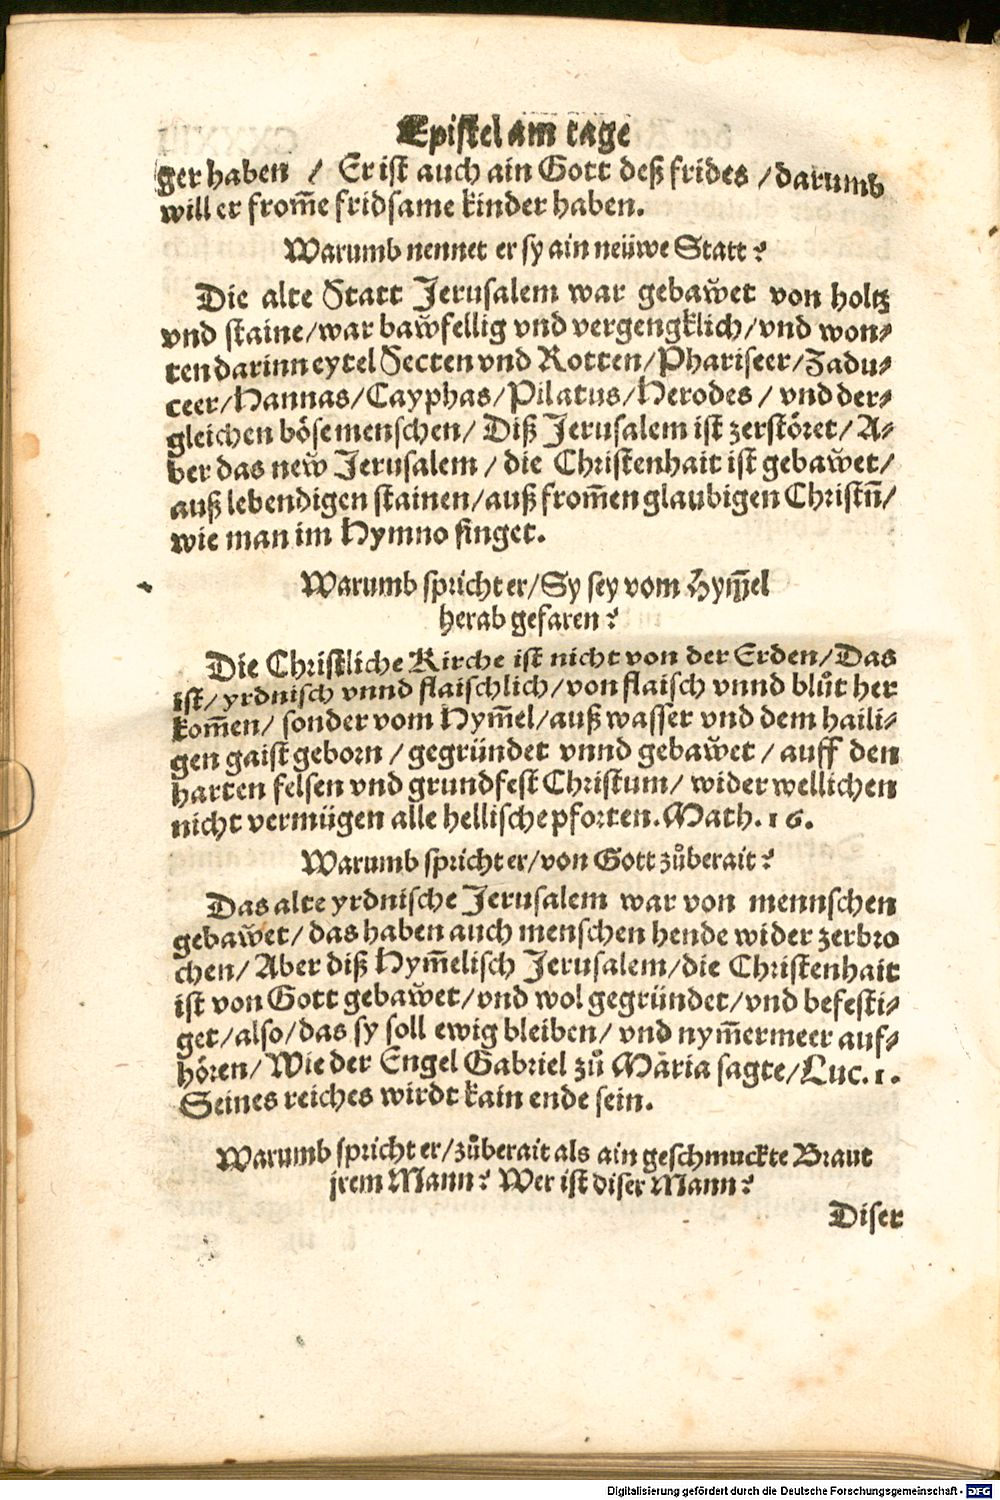 Epistel am tage
ger haben / Er ist auch ain Gott deß frides / darumb
will er from̃e fridsame kinder haben.
Warumb nennet er sy ain neüwe Statt?
Die alte Statt Jerusalem war gebaw̃et von holtz
vnd staine/war baw̃fellig vnd vergengklich/vnd won⸗
ten darinn eytel Secten vnd Rotten/Phariseer/Zadu⸗
ceer/Hannas/Cayphas/Pilatus/Herodes / vnd der⸗
gleichen böse menschen/ Diß Jerusalem ist zerstöret/ A⸗
ber das new̃ Jerusalem / die Christenhait ist gebaw̃et/
auß lebendigen stainen/auß from̃en glaubigen Christñ/
wie man im Hymno singet.
Warumb spricht er/Sy sey vom Hym̃el
herab gefaren?
Die Christliche Kirche ist nicht von der Erden/Das
ist/ yrdnisch vnnd flaischlich/von flaisch vnnd blůt her
kom̃en/ sonder vom Hym̃el/auß wasser vnd dem haili⸗
gen gaist geborn / gegründet vnnd gebaw̃et / auff den
harten felsen vnd grundfest Christum/ wider wellichen
nicht vermügen alle hellische pforten.Math.16.
Warumb spricht er/von Gott zůberait?
Das alte yrdnische Jerusalem war von mennschen
gebaw̃et/ das haben auch menschen hende wider zerbro
chen/ Aber diß Hym̃elisch Jerusalem/die Christenhait
ist von Gott gebaw̃et/vnd wol gegründet/vnd befesti⸗
get/also/das sy soll ewig bleiben/ vnd nym̃ermeer auf⸗
hören/ Wie der Engel Gabriel zů Maria sagte/Luc.1.
Seines reiches wirdt kain ende sein.
Warumb spricht er/zůberait als ain geschmuckte Braut
jrem Mann? Wer ist diser Mann?
Diser
Digitalisierung gefördert durch die Deutsche Forschungsgemeinschaft - DFG